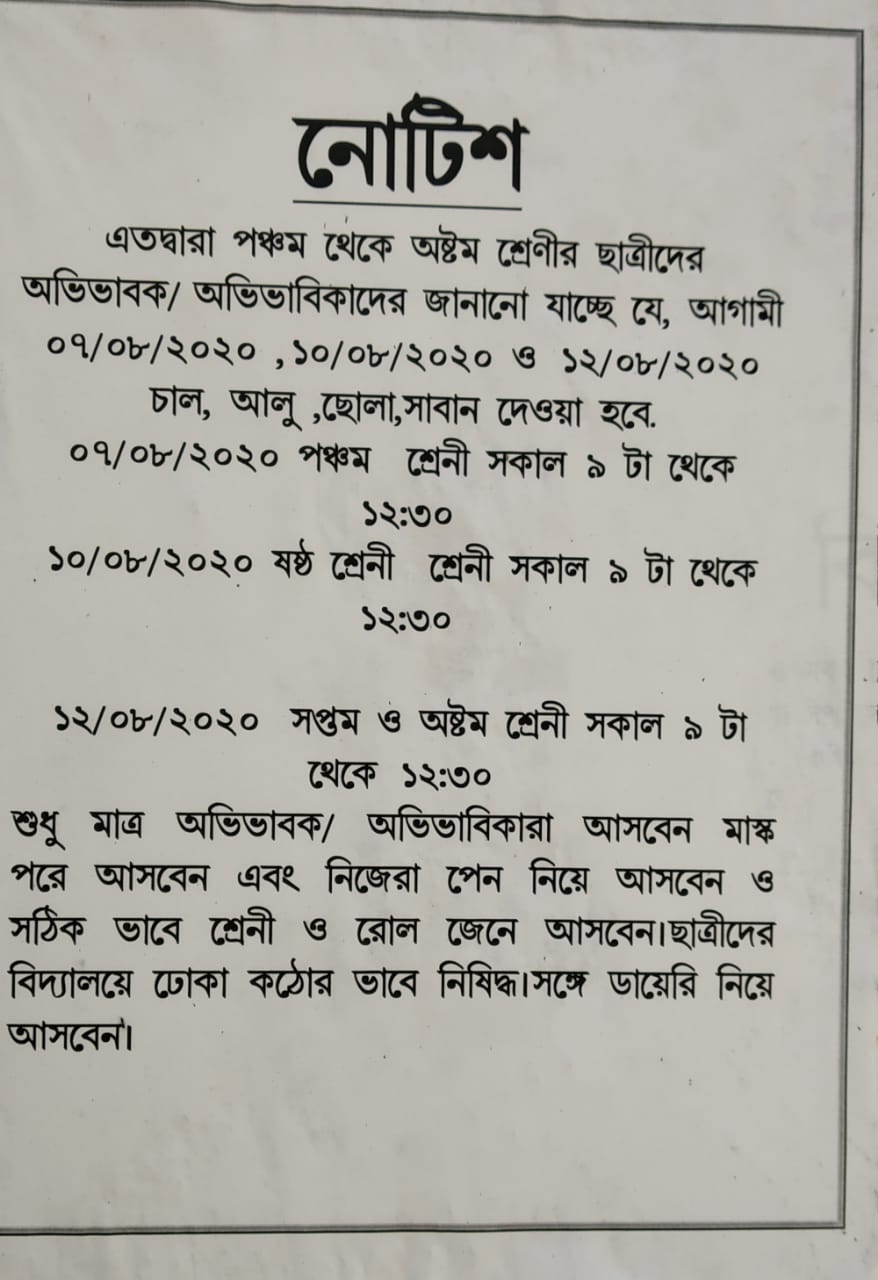 নোটিশ
এতদ্বারা পঞ্চম থেকে অষ্টম শ্রেণীর ছাত্রীদের
অভিভাবক/ অভিভাবিকাদের জানানো যাচ্ছে যে, আগামী
০৭/০৮/২০২০ ,১০/০৮/২০২০ ও ১২/০৮/২০২০
চাল, আলু ,ছোলা,সাবান দেওয়া হবে.
০৭/০৮/২০২০ পঞ্চম শ্রেনী সকাল ৯ টা থেকে
১২:৩০
১০/০৮/২০২০ ষষ্ঠ শ্রেনী শ্রেনী সকাল ৯ টা থেকে
১২:৩০
১২/০৮/২০২০ সপ্তম ও অষ্টম শ্রেনী সকাল ৯ টা
থেকে ১২:৩০
শুধু মাত্র অভিভাবক/ অভিভাবিকারা আসবেন মাস্ক
পরে আসবেন এবং নিজেরা পেন নিয়ে আসবেন ও
সঠিক ভাবে শ্রেনী ও রোল জেনে আসবেন।ছাত্রীদের
বিদ্যালয়ে ঢোকা কঠোর ভাবে নিষিদ্ধ।সঙ্গে ডায়েরি নিয়ে
আসবেন।